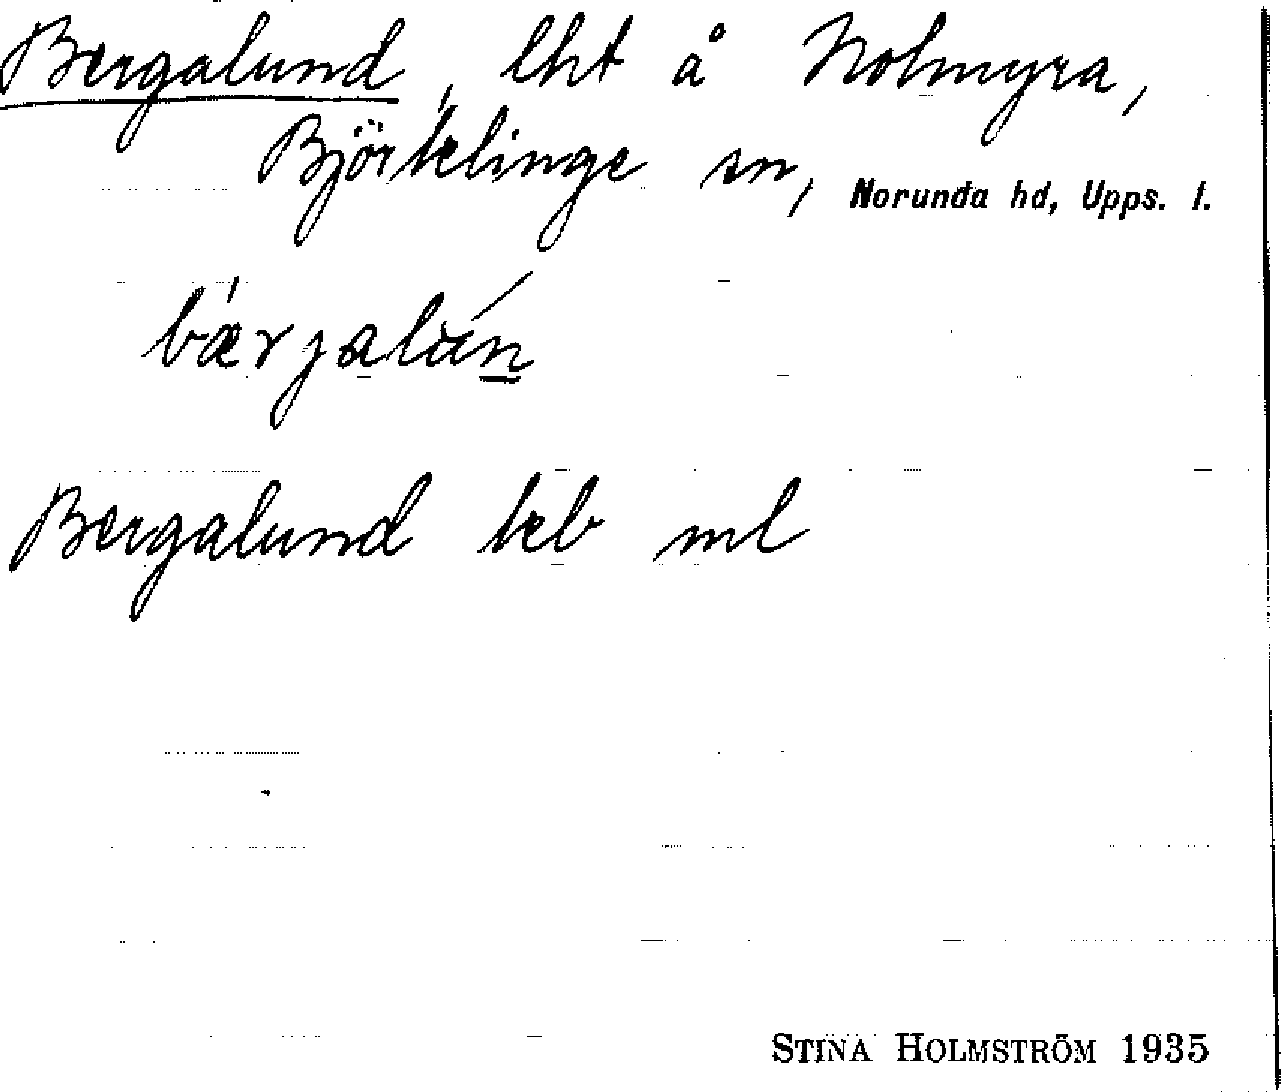 Bergalund, lht å Nolmyra,
Björklinge sn, Norunda hd, Upps. l.
bærjalún
Bergalund kb ml
STINA HOLMSTRÖM 1935